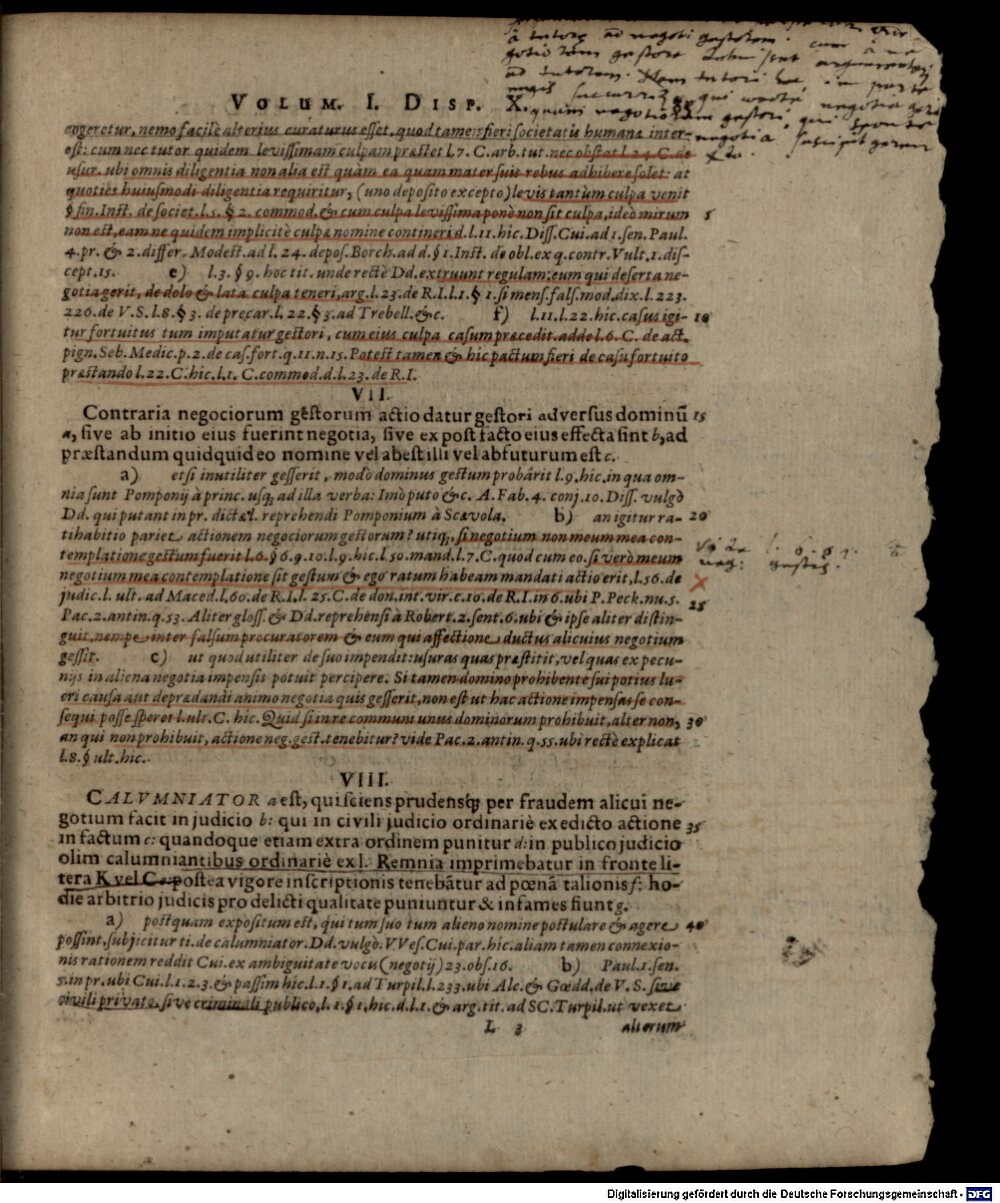 à tutore ad negoti gestorem. cum à ne-
gotiorum gestore
ad tutorem. Nam tutori
magis succurri qui negotia
quam negotiorum gestori, qui sponte
negotia suscipit
VOLUM. I. DISP. X.
engeretur, nemo facilè alterius curaturus esset, quod tamen fieri societatis humanæ inter-
est: cum nec tutor quidem levissimam culpam præstet l.7. C. arb. tut. nec obstat l.24. C. de
usur. ubi omnis diligentia non alia est quàm ea quam mater suis rebus adhibere solet: at
quoties huiusmodi diligentia requiritur, (uno deposito excepto) levis tantùm culpa venit
§ fin. Inst. de societ. l.5. § 2. commod. & cum culpa levissima ponè non sit culpa, ideò mirum 5
non est, eam ne quidem implicitè culpæ nomine contineri d.l.11. hic. Diss. Cui. ad 1. sen. Paul.
4. pr. & 2. differ. Modest. ad l. 24. depos. Borch. ad d. § 1. Inst. de obl. ex q. contr. Vult. 1. dis-
cept. 15. e) l.3. § 9. hoc tit. unde rectè Dd. extruunt regulam; eum qui deserta ne-
gotia gerit, de dolo & lata culpa teneri, arg. l. 23. de R.I. l.1. § 1. si mens. fals. mod. dix. l. 223.
226. de V. S. l.8. § 3. de precar. l. 22. § 3. ad Trebell. &c. f) l.11. l.22. hic. casus igi- 10
tur fortuitus tum imputatur gestori, cum eius culpa casum præcedit. adde l.6. C. de act.
pign. Seb. Medic. p. 2. de cas. fort. q. 11. n. 15. Potest tamen & hic pactum fieri de casu fortuito
præstando l. 22. C. hic. l.1. C. commod. d. l. 23. de R.I.
VII.
Contraria negociorum gestorum actio datur gestori adversus dominũ 15
a, sive ab initio eius fuerint negotia, sive ex post facto eius effecta sint b, ad
præstandum quidquid eo nomine vel abest illi vel abfuturum est c.
a) etsi inutiliter gesserit, modò dominus gestum probârit l.9. hic. in qua om-
nia sunt Pomponij à princ. usq; ad illa verba: Imò puto &c. A. Fab. 4. conj. 10. Diss. vulgò
Dd. qui putant in pr. dictæ l. reprehendi Pomponium à Scævola. b) an igitur ra- 20
tihabitio pariet actionem negociorum gestorum? utiq;, si negotium non meum mea con-
templatione gestum fuerit l.6. § 6. 9. 10. l.9. hic. l. 50. mand. l.7. C. quod cum eo. si verò meum
negotium mea contemplatione sit gestum & ego ratum habeam mandati actio erit, l. 56. de
judic. l. ult. ad Maced. l. 60. de R.I. l. 25. C. de don. int. vir. c. 10. de R.I. in 6. ubi P. Peck. nu. 5.
Pac. 2. antin. q. 53. Aliter gloss. & Dd. reprehensi à Robert. 2. sent. 6. ubi & ipse aliter distin- 25
guit, nempe inter falsum procuratorem & eum qui affectione ductus alicuius negotium
gessit. c) ut quod utiliter de suo impendit: usuras quas præstitit, vel quas ex pecu-
nijs in aliena negotia impensis potuit percipere. Si tamen domino prohibente sui potius lu-
cri causa aut deprædandi animo negotia quis gesserit, non est ut hac actione impensas se con-
sequi posse speret l. ult. C. hic. Quid si in re communi unus dominorum prohibuit, alter non, 30
an qui non prohibuit, actione neg. gest. tenebitur? vide Pac. 2. antin. q. 55. ubi rectè explicat
l.8. § ult. hic.
VIII.
CALVMNIATOR a est, qui sciens prudensq; per fraudem alicui ne-
gotium facit in judicio b: qui in civili judicio ordinariè ex edicto actione 35
in factum c: quandoque etiam extra ordinem punitur d: in publico judicio
olim calumniantibus ordinariè ex l. Remnia imprimebatur in fronte li-
tera K vel C e. postea vigore inscriptionis tenebãtur ad pœnã talionis f: ho-
die arbitrio judicis pro delicti qualitate puniuntur & infames fiunt g.
a) postquam expositum est, qui tum suo tum alieno nomine postulare & agere 40
possint, subjicitur ti. de calumniator. Dd. vulgò. VVes. Cui. par. hic. aliam tamen connexio-
nis rationem reddit Cui. ex ambiguitate vocis (negotij) 23. obs. 16. b) Paul. 1. sen.
5. in pr. ubi Cui. l.1. 2. 3. & passim hic. l.1. § 1. ad Turpil. l. 233. ubi Alc. & Gœdd. de V. S. sive
civili privato, sive criminali publico, l.1. § 1. hic. d. l.1. & arg. tit. ad SC. Turpil. ut vexet
L 3 alterum
Digitalisierung gefördert durch die Deutsche Forschungsgemeinschaft - DFG